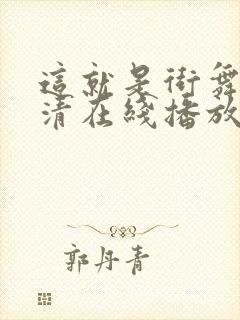 這就是街舞
清在綫播放
郭丹青